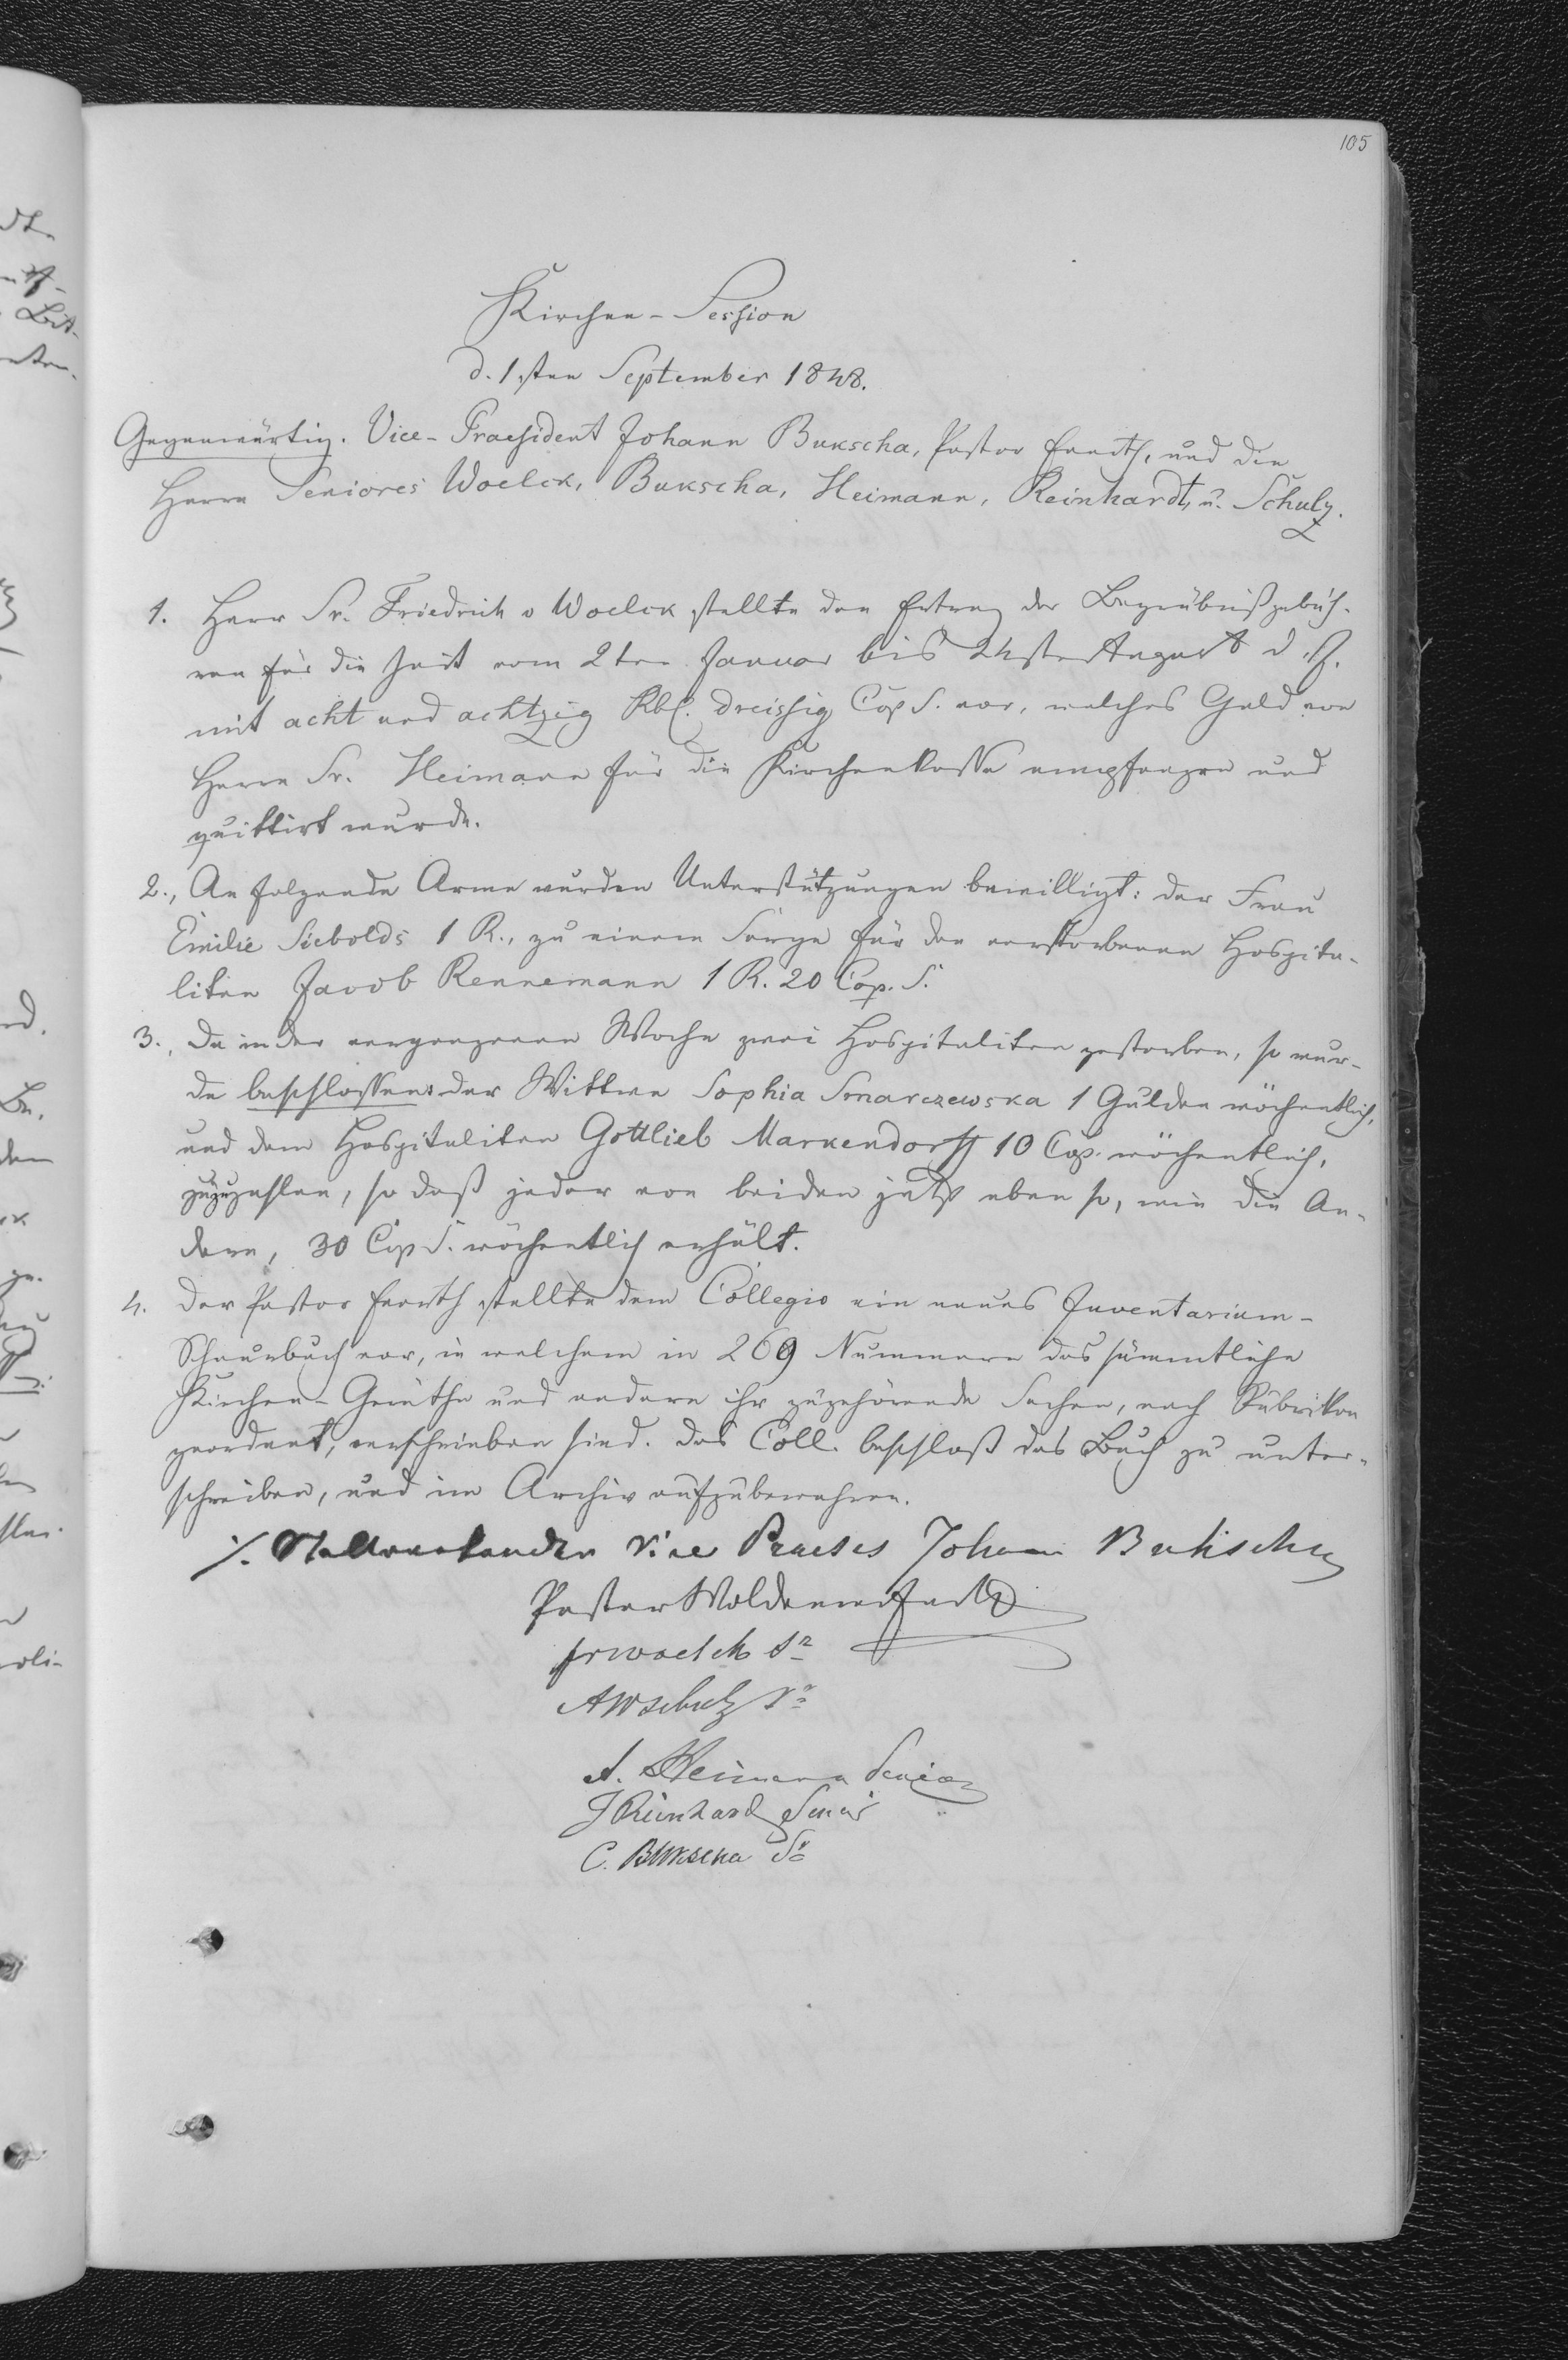 105
Kirchen-Session
d. 1sten September 1848.
Gegenwärtig. Vice-Praesident Johann Bukscha, Pastor Everth, und die
Herrn Seniores Woelck, Bukscha, Heimann, Reinhardt, u. Schulz.
1. Herr Sr. Friedrich v Woelck stellte den Ertrag der Begräbnißgebüh-
ren für die Zeit vom 2ten Januar bis 24sten August d. J.
mit acht und achtzig Rbl. dreissig Cop S. vor, welches Geld von
Herrn Sr. Heimann für die Kirchenkasse empfangen und
quittirt wurde.
2., An folgende Arme wurden Unterstützungen bewilligt: der Frau
Emilie Siebolds 1 R., zu einem Sarge für den verstorbenen Hospita-
liten Jacob Rennemann 1 R. 20 Cop. S.
3., Da in der vergangenen Woche zwei Hospitaliten gestorben, so wur-
de beschlossen: der Wittwe Sophia Smarczewska 1 Gulden wöchentlich,
und dem Hospitaliten Gottlieb Markendorff 10 Cop. wöchentlich,
zuzuzahlen, so daß jeder von beiden jetzt eben so, wie die An-
dern, 30 Cop S. wöchentlich erhält.
4. Der Pastor Everth stellte dem Collegio ein neues Inventarium-
Schnurbuch vor, in welchem in 269 Nummern das sämmtliche
Kirchen-Geräthe und andere ihr zugehörende Sachen, nach Rubriken
geordnet, verschrieben sind. Das Coll. beschloß das Buch zu unter-
schreiben, und im Archiv aufzubewahren.
Vice Praeses Johann Bukscha
Pastor Woldemar Everth
Fr Woelck Sr
AW Schulz Sr
A. Heimann Senior
J Reinhard Senior
C. Bukscha Sr